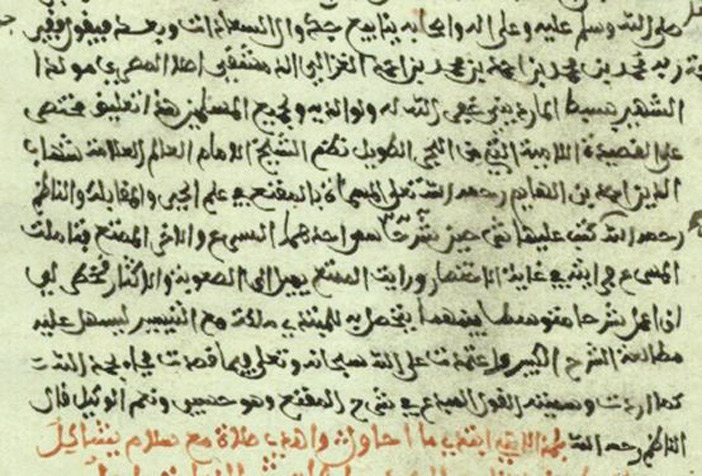 صلى الله وسلم عليه وعلى اله واصحابه ينابيع جدة وال السعادات وبعد فيقول فقير
ربه محمد بن محمد بن احمد بن محمد بن احمد الغزالي الدمشقي اصلا المصري مولدا
الشهير بسبط المارديني غفر الله له ولوالديه ولجميع المسلمين هذا تعليق مختصر
على القصيدة اللامية التي من البحر الطويل نظم الشيخ الامام العالم العلامة شهاب
الدين احمد بن الهايم رحمه الله تعلى المسماة بالمقنع في علم الجبر والمقابلة والناظم
رحمه الله كتب عليها شرحين شرحت احدهما المسرع والاخر الممتع فتاملت
المسرع فرايته في غاية الاختصار ورايت الممتع يميل الى الصعوبة والاكثار فخطر لي
ان اعمل شرحا متوسطا بينهما يتحصل به للمبتدي ملكة مع التيسير ليسهل عليه
مطالعة الشرح الكبير واعتمدت على الله سبحانه وتعلى فيما قصدت فجاء بحمد الله
كما اردت وسميته القول المبدع في شرح المقنع وهو حسبي ونعم الوكيل قال
الناظم رحمه الله بحمد الاهي ابتدي ما احاول واهدي صلاة مع سلام يشاكل